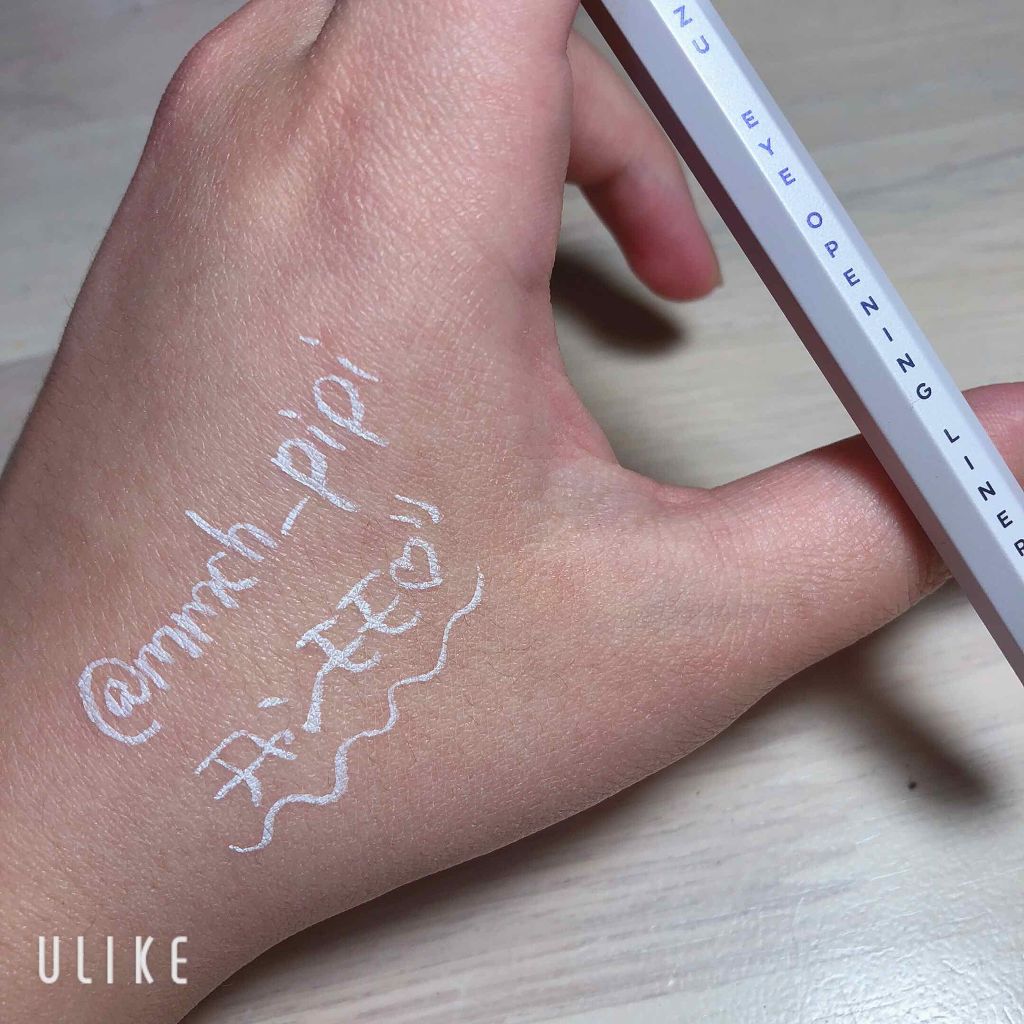 ZU EYE OPENING LINER
@mmch_pipi
ULIKE